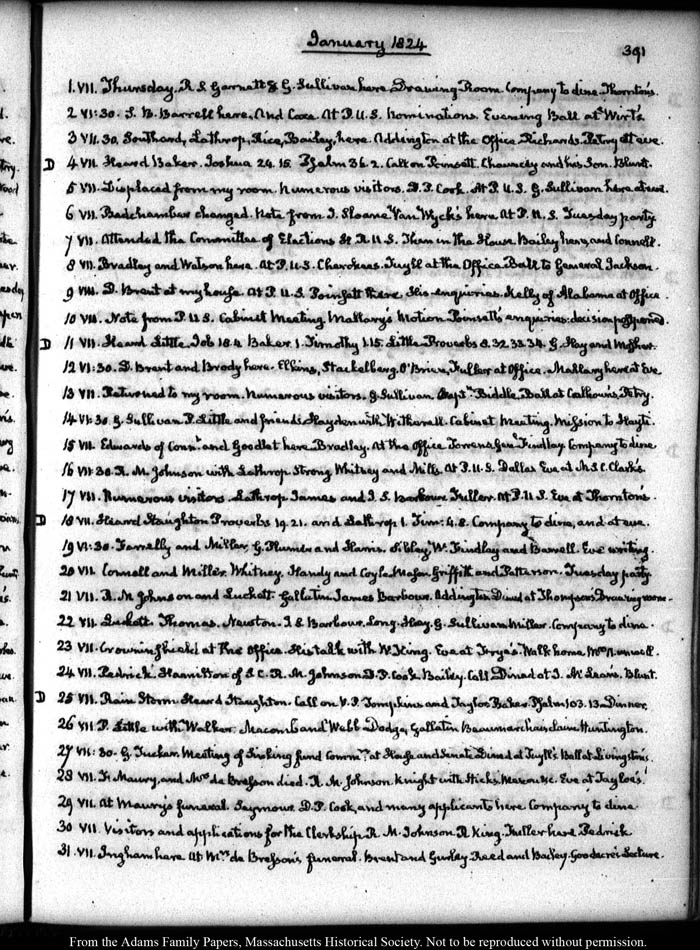 January 1824
391
1. VII. Thursday. R. S. Garnett & G. Sullivan here. Drawing Room Company to dine. Thornton's.
2 VI:30. S. B. Barrell here. And Coxe. At P. U. S. Nominations. Evening Ball at Wirt's
3 VII.30. Southard, Lathrop, Rice, Bailey, here. Addington at the Office Richards. Petry at eve.
D 4 VII. Heard Baker. Joshua 24. 15. Psalm 36. 2. Call on Poinsett. Chauncey and his Son. Blunt.
5 VII. Displaced from my room. Numerous visitors. D. P. Cook. At P. U. S. G. Sullivan here at eve.
6 VII. Bedchamber changed. Note from J. Sloane Van Wyck's here At P. U. S. Tuesday party
7 VII. Attended the Committee of Elections H. R. U. S. Then in the House Bailey here, and Connell.
8 VII. Bradley and Watson here. At P. U. S. Cherokees. Tuyll at the Office Ball to General Jackson.
9 VIII. D. Brent at my house. At P. U. S. Poinsett there. His enquiries. Kelly of Alabama at Office.
10 VII. Note from P. U. S. Cabinet Meeting. Mallary's Motion Poinsett's enquiries: decision postponed.
D 11 VII. Heard Little. Job 18. 4. Baker 1. Timothy 1. 15. Little Proverbs 8. 32 33 34. G. Hay and Mosher.
12 VI:30. D. Brent and Brody here. Elkins, Stackelberg. O'Brien, Fuller at Office. Mallary here at Eve
13 VII. Returned to my room. Numerous visitors. G. Sullivan Captn. Biddle. Ball at Calhoun's. Petry.
14 VI:30. G. Sullivan P. Little and friend: Hayden with Witherell. Cabinet Meeting. Mission to Hayti.
15 VII. Edwards of Connt. and Goodlet here. Bradley. At the Office Torrens Genl. Findlay Company to dine
16 VII:30. R. M. Johnson with Lathrop Strong Whitney and Mills. At P. U. S. Dallas Eve at M. S. C. Clark's
17 VII. Numerous visitors. Lathrop James and J. S. Barbour. Fuller. At P. U. S. Eve at Thornton's.
D 18 VII. Heard Staughton Proverbs 19. 21. and Lathrop 1. Tim: 4. 8. Company to dine, and at eve.
19 VI:30. Farrelly and Miller. G. Plumer and Harris. Sibley, W. Findlay and Barrell. Eve writing.
20 VII. Connell and Miller. Whitney. Handy and Coyle Mason Griffith and Patterson. Tuesday party
21 VII. R. M. Johnson and Luckett. Gallatin James Barbour. Addington Dined at Thompson's Drawing room.
22 VII. Luckett Thomas. Newton. J. S. Barbour. Long. Hay. G. Sullivan Miller. Company to dine.
23 VII. Crowninshield at the Office. His talk with W. King. Eve at Forye's. Walk home Mrs. Nunnell.
24 VII. Pedrick Hamilton of S. C. R. M. Johnson D. P. Cook Bailey. Call Dined at J. McLean's. Blunt.
D 25 VII. Rain Storm Heard Staughton. Call on V. P. Tompkins and Tayloe Baker. Psalm 103. 13. Dinner.
26 VII P. Little with Walker. Macomb and Webb Dodge, Gallatin Beaumarchais claim Huntington.
27 VII:30. G. Tucker. Meeting of Sinking fund Commrs. at House and Senate Dined at Tuyll's. Ball at Livingston's.
28 VII. F. Maury, and Mrs. de Bresson died. R. M. Johnson. Knight with Hicks. Monroe &c. Eve at Tayloe's.
29 VII. At Maury's funeral. Seymour. D. P. Cook, and many applicants here Company to dine
30 VII. Visitors and applications for the Clerkship. R. M. Johnson. R. King. Fuller here. Pedrick
31 VII. Ingham here At Mrs. de Bresson's funeral. Brent and Gurley. Reed and Bailey. Goodacre's Lecture.
From the Adams Family Papers, Massachusetts Historical Society. Not to be reproduced without permission.